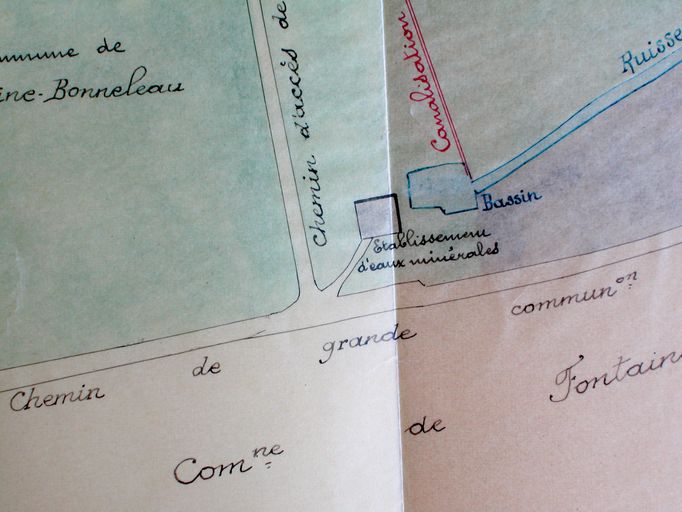 Commune de
ine-Bonneleau
Chemin d'accès de
Canalisation
Ruisse
Bassin
Etablissement
d'eaux minérales
Chemin de grande commun^on
Com^ne de Fontain